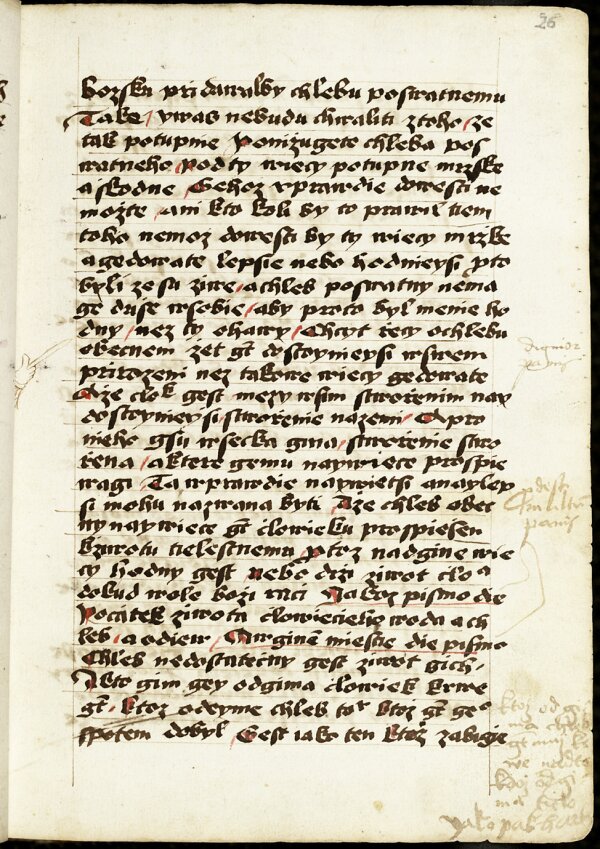 26
bozsku pridawalby chlebu poswatnemu
Take / ywas nebudu chwaliti ztoho / ze
tak potupnie ponizugete chleba pos
watneho / podty wiecy potupne mrzske
a skodne / Gehoz vprawdie dowesti ne
mozte / ani kto koli by to prawil tiem
toho nemoz dowesti by ty wiecy mrzke
a gedowate lepsie nebo hodnieysi pto
byli ze su ziwe / a chleb poswatny nema
ge duse wsobie / aby proto byl menie ho
dny / nez ty ohawy / Chcyt recy ochlebu
obecnem zet gt dostoynieysi wswem
prirozeni nez takowe wiecy gedowate
Aze clok gest mezy wsim stworenim nay
dostoynieysi stworenie nazemi / A pro
nieho gsu wsecka gina / stworenie stwo
rena / a ktere gemu naywiece prospie
wagi / Ta wprawdie naywietsi a naylep
si mohu nazwana byti Aze chleb obec
ny naywiece gt clowieku prospiesen
kziwotu tielestnemu / ptoz nadgine wie
cy hodny gest nebo drzi ziwot clo
dokud wole bozi raci Jakoz pismo die
Pocatek ziwota clowiecieho woda a ch
leb / a odiew / A wginem miestie die pismo
Chleb nedostatecny gest ziwot gich /
Akto gim gey odgima clowiek krwe
gt / ktoz odeyme chleb tor ktoz gt ge
spotem dobyl / Gest iako ten ktoz zabigie
dignior
panis